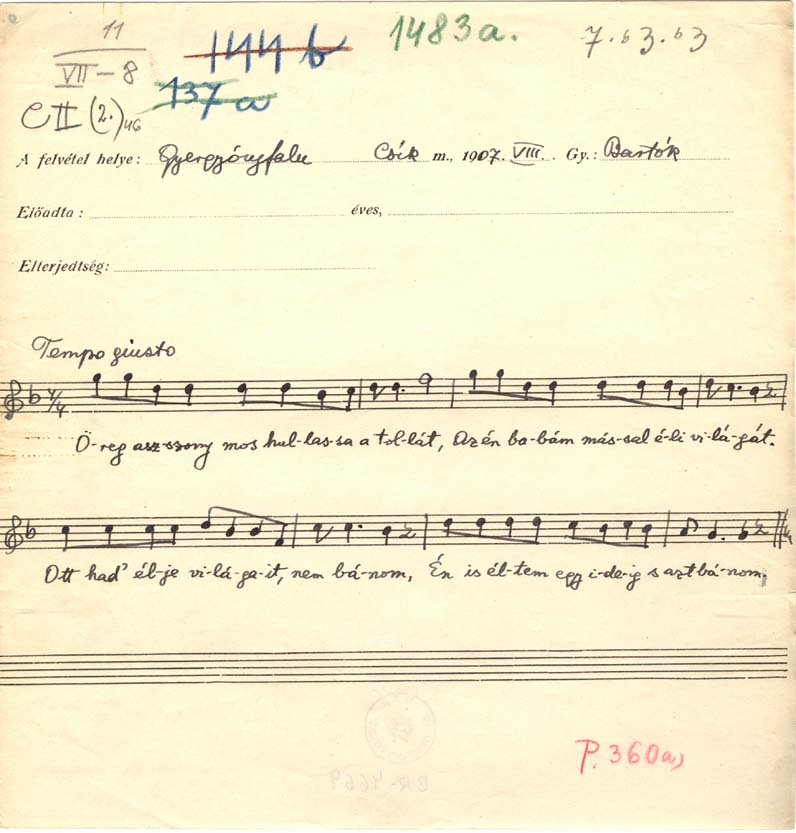 11
VII – 8
144 b
1483a.
7. 63. 63
137 a
C II (2.) 46
A felvétel helye: Gyergyóujfalu Csík m., 1907. VIII. Gy.: Bartók
Előadta : éves,
Elterjedtség:
Tempo giusto
Ö-reg asz-szony mos hul-las-sa a tol-lát, Az én ba-bám más-sal é-li vi-lá-gát.
Ott had' él-je vi-lá-ga-it, nem bá-nom, Én is él-tem egy i-de-ig s azt bá-nom,
P. 360a)
BR-4664